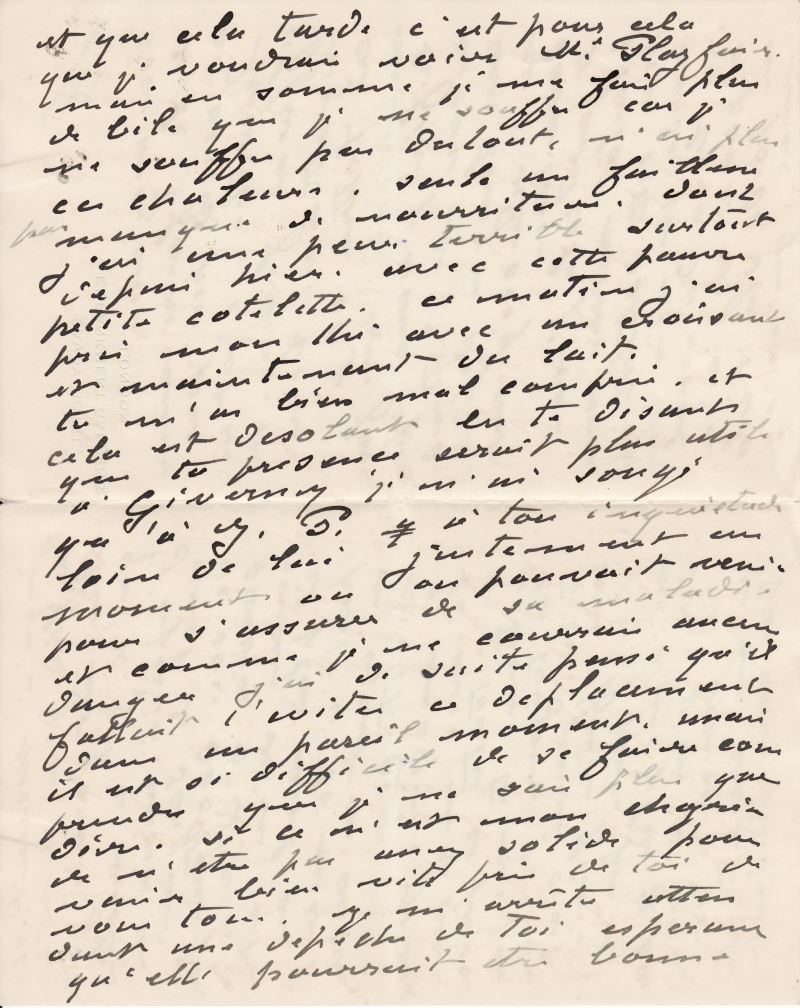 et que cela tarde c'est pour cela
que je voudrai voir Mr Playfair.
mais en somme je me fais plus
de bile que je ne souffre car je
ne souffre pas du tout, n'ai plus
ces chaleurs. seule un faiblesse
par manque de nourriture. dont
j'ai une peur terrible surtout
depuis hier. avec cette pauvre
petite cotelette. ce matin j'ai
pris mon thé avec un croissant
et maintenant du lait.
tu m'as bien mal compris. et
cela est desolant en te disant
que ta presence serait plus utile
à Giverny je n'ai songé
qu'à J. P. à ton inquietude
loin de lui justement au
moment ou on pouvait venir
pour s'assurer de sa maladie.
et comme je ne courrais aucun
danger j'ai de suite pensé qu'il
fallait t'eviter ce deplacement
dans un pareil moment. mais
il est si difficile de se faire com
prendre que je ne sais plus que
dire. si ce n'est mon chagrin
de n'etre pas assez solide pour
venir bien vite pres de toi de
vous tous. je m'arrête atten
dant une depeche de toi esperant
qu'elle pourrait etre bonne